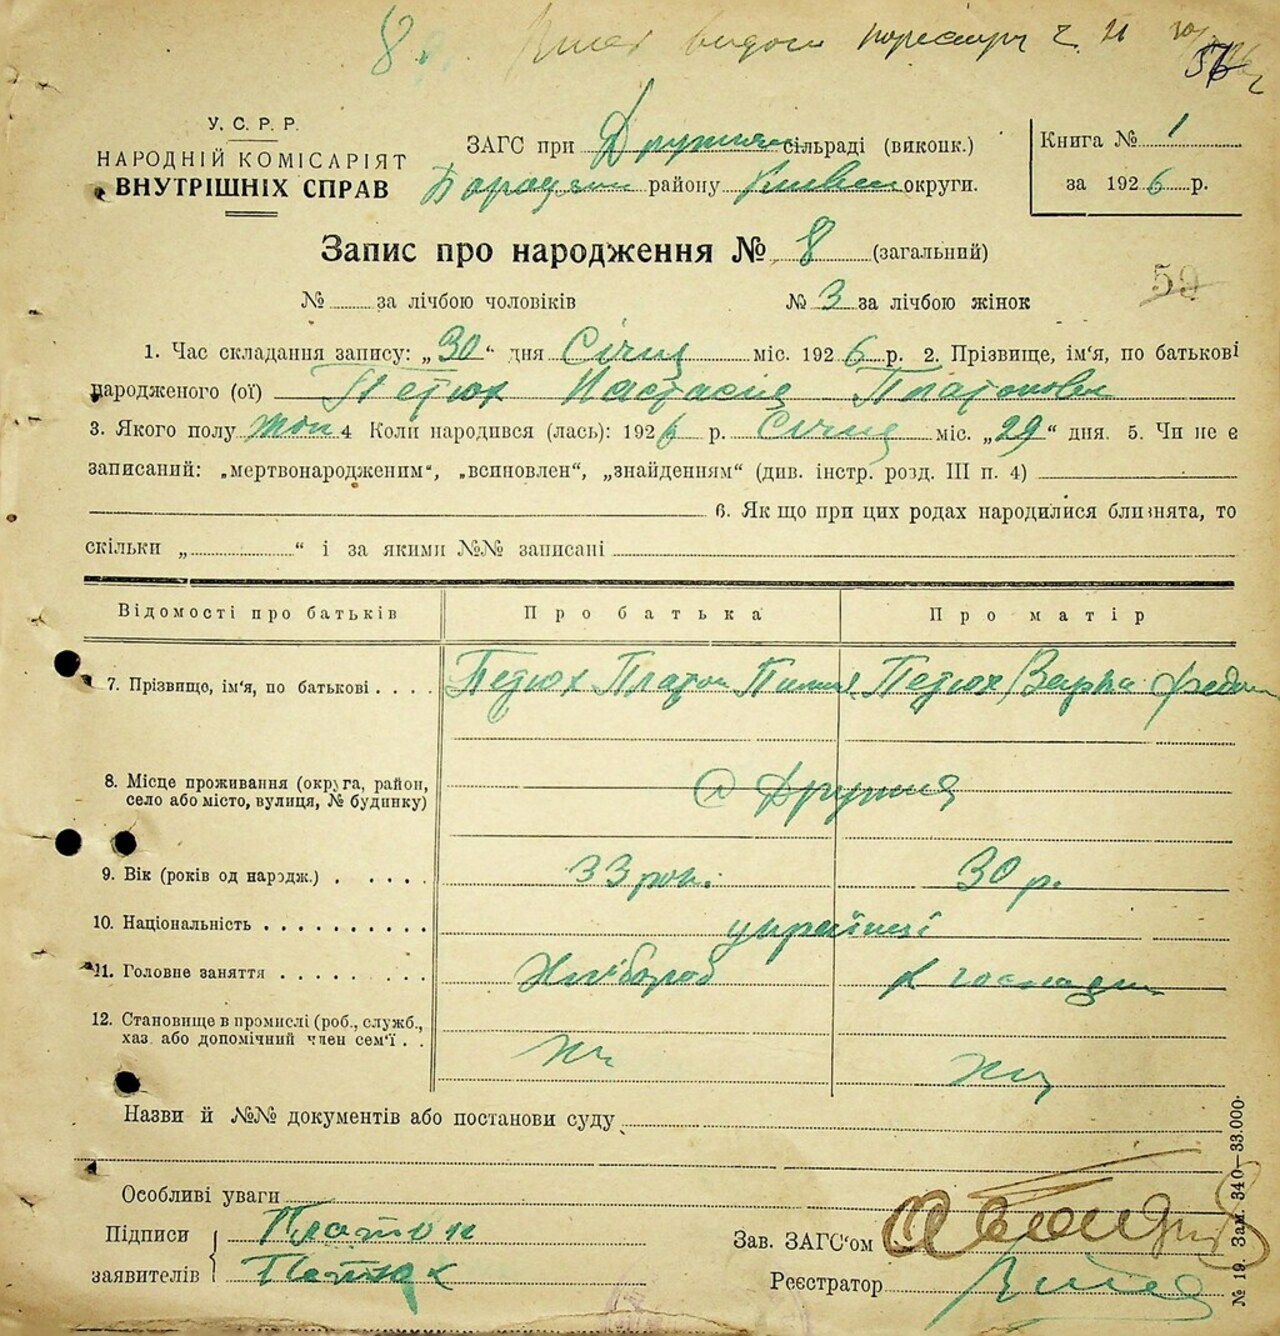 8.
56
У. С. Р. Р.
НАРОДНІЙ КОМІСАРІЯТ
ВНУТРІШНІХ СПРАВ
ЗАГС при сільраді (виконк.)
району округи.
Книга № 1
за 1926 р.
Запис про народження № 8 (загальний)
№ за лічбою чоловіків № 3 за лічбою жінок
59
1. Час складання запису: „30“ дня Січня міс. 1926 р. 2. Прізвище, ім'я, по батькові
народженого (ої) Петюх Настасия Платоновна
3. Якого полу жін 4 Коли народився (лась): 1926 р. Січня міс. „29“ дня. 5. Чи не є
записаний: „мертвонародженим“, „всиновлен“, „знайденням“ (див. інстр. розд. III п. 4)
6. Як що при цих родах народилися близнята, то
скільки „ “ і за якими №№ записані
Відомості про батьків Про батька Про матір
7. Прізвище, ім'я, по батькові Петюх Платон Петюх Варка
8. Місце проживання (округа, район,
село або місто, вулиця, № будинку)
с Дружня
9. Вік (років од народж.) 33 рок. 30 р.
10. Національність українці
11. Головне заняття Хлібороб
12. Становище в промислі (роб., служб.,
хаз. або допомічний член сем'ї
Назви й №№ документів або постанови суду
Особливі уваги
Підписи Платон
заявителів Петюх
Зав. ЗАГС'ом
Реєстратор
№ 19. Зам. 340—33.000.